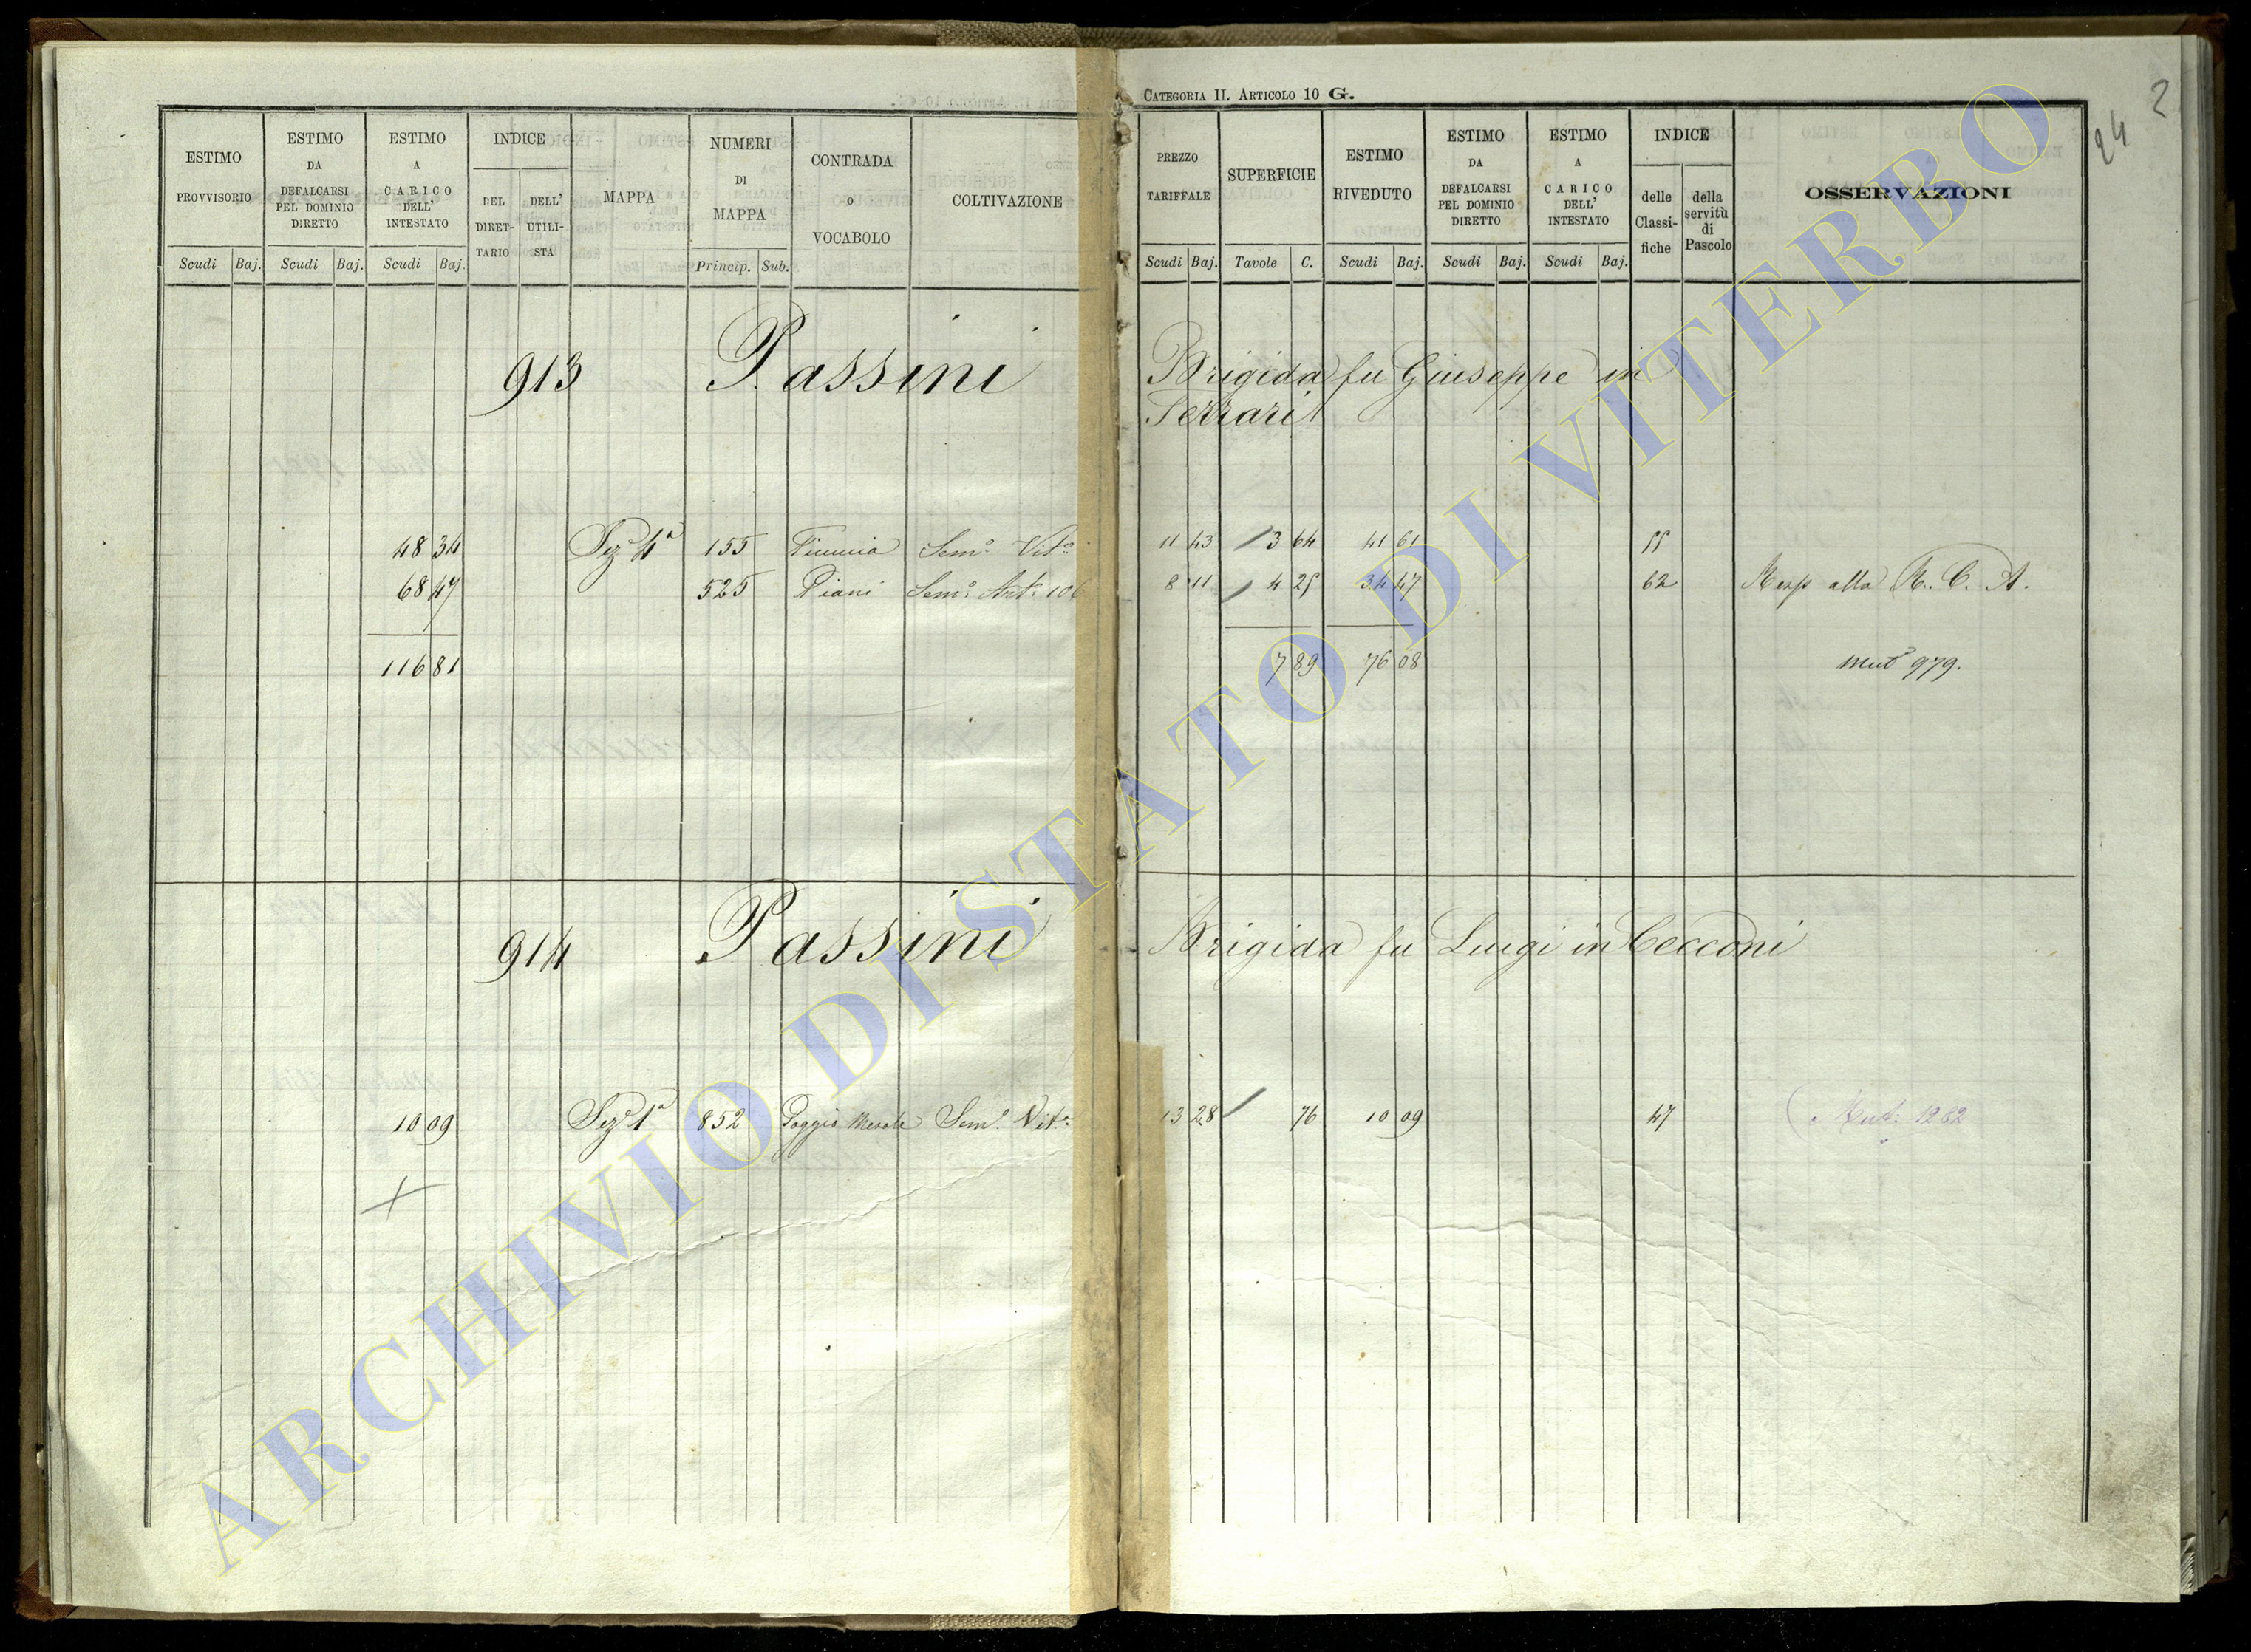 CATEGORIA II. ARTICOLO 10 G.
24
2
ESTIMO PROVVISORIO
ESTIMO DA DEFALCARSI PEL DOMINIO DIRETTO
ESTIMO A CARICO DELL' INTESTATO
INDICE
DEL DIRET-TARIO
DELL' UTILI-STA
MAPPA
NUMERI DI MAPPA
CONTRADA O VOCABOLO
COLTIVAZIONE
PREZZO TARIFFALE
SUPERFICIE
ESTIMO RIVEDUTO
ESTIMO DA DEFALCARSI PEL DOMINIO DIRETTO
ESTIMO A CARICO DELL' INTESTATO
INDICE
delle Classi-fiche
della servitù di Pascolo
OSSERVAZIONI
Scudi Baj. Scudi Baj. Scudi Baj. Princip. Sub. Scudi Baj. Tavole C. Scudi Baj. Scudi Baj. Scudi Baj.
913 Passini Brigida fu Giuseppe in
Ferrari
48 34 Sez. 4ª 155 Sem.o Vit.o 11 43 3 64 41 61 55
68 47 525 Piani Sem.o Art. 106 8 11 4 25 34 47 62 Resp alla R. C. A.
116 81 7 89 76 08 Mut.a 979.
914 Passini Brigida fu Luigi in Cecconi
10 09 Sez. 1ª 852 Poggio Sem.o Vit.o 13 28 76 10 09 47 Mut. 1282
ARCHIVIO DI STATO DI VITERBO